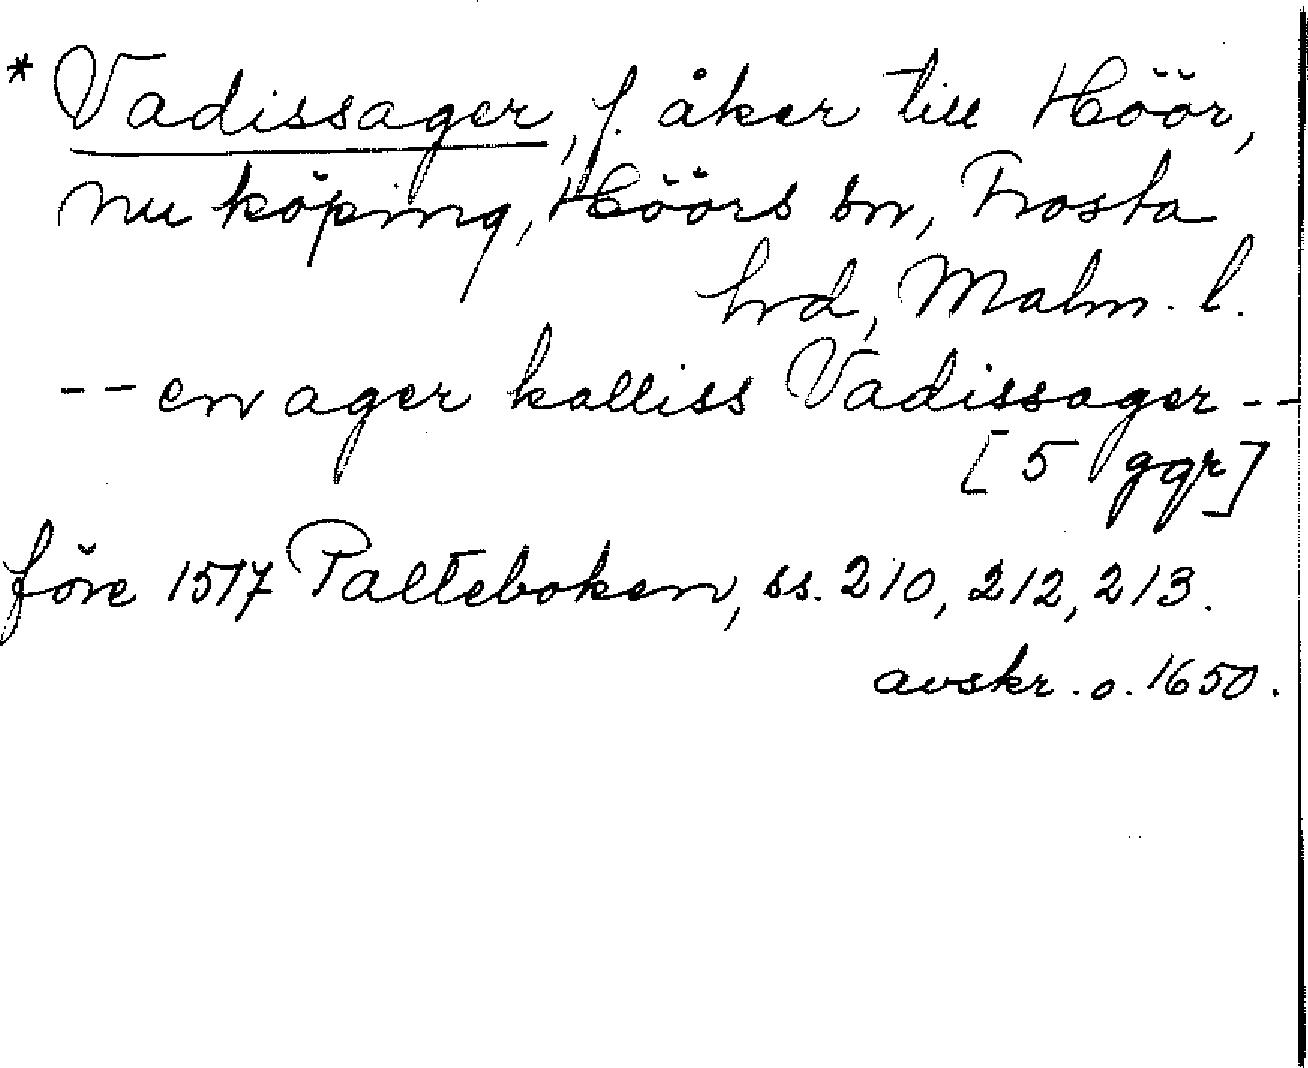 * Vadissager, f. åker till Höör,
nu köping, Höörs sn, Frosta
hrd, Malm. l.
-- en ager kalliss Vadissager --
[5 ggr]
före 1517 Palteboken, ss. 210, 212, 213.
avskr. o. 1650.